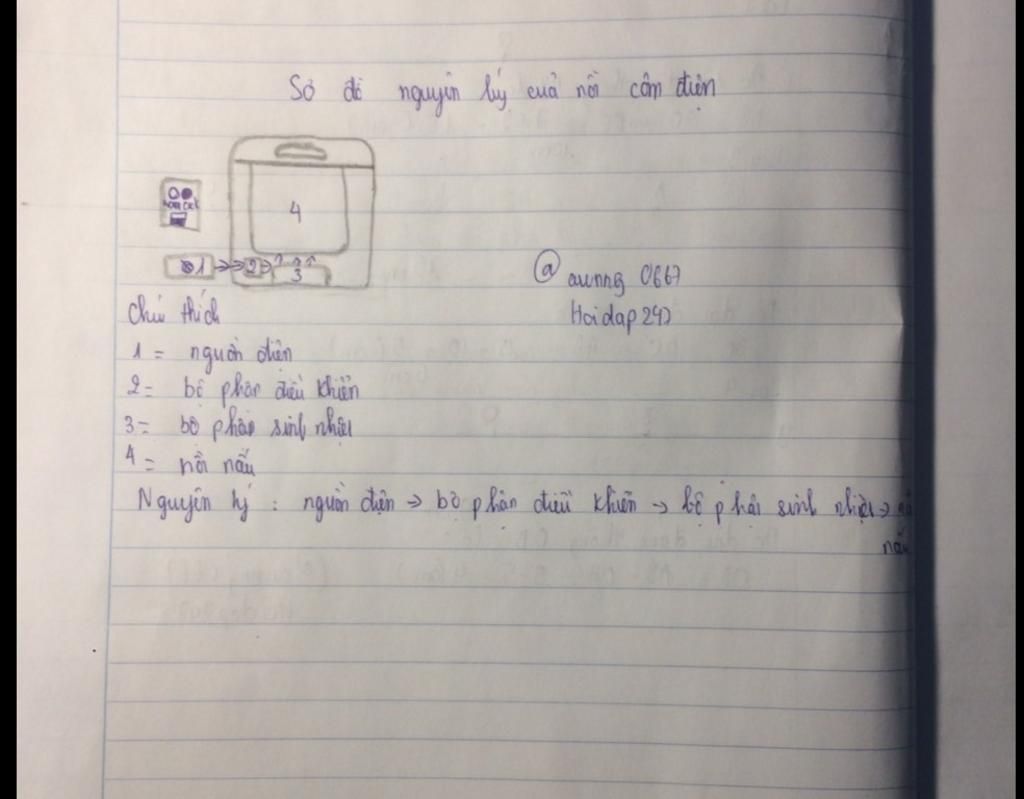 Sơ đồ nguyên lý của nồi cơm điện
4
1 →→ 2 → 3
@ aunng 0667
Hoidap247
Chú thích
1 = nguồn điện
2 = bộ phận điều khiển
3 = bộ phận sinh nhiệt
4 = nồi nấu
Nguyên lý : nguồn điện → bộ phận điều khiển → bộ phận sinh nhiệt →
nấu